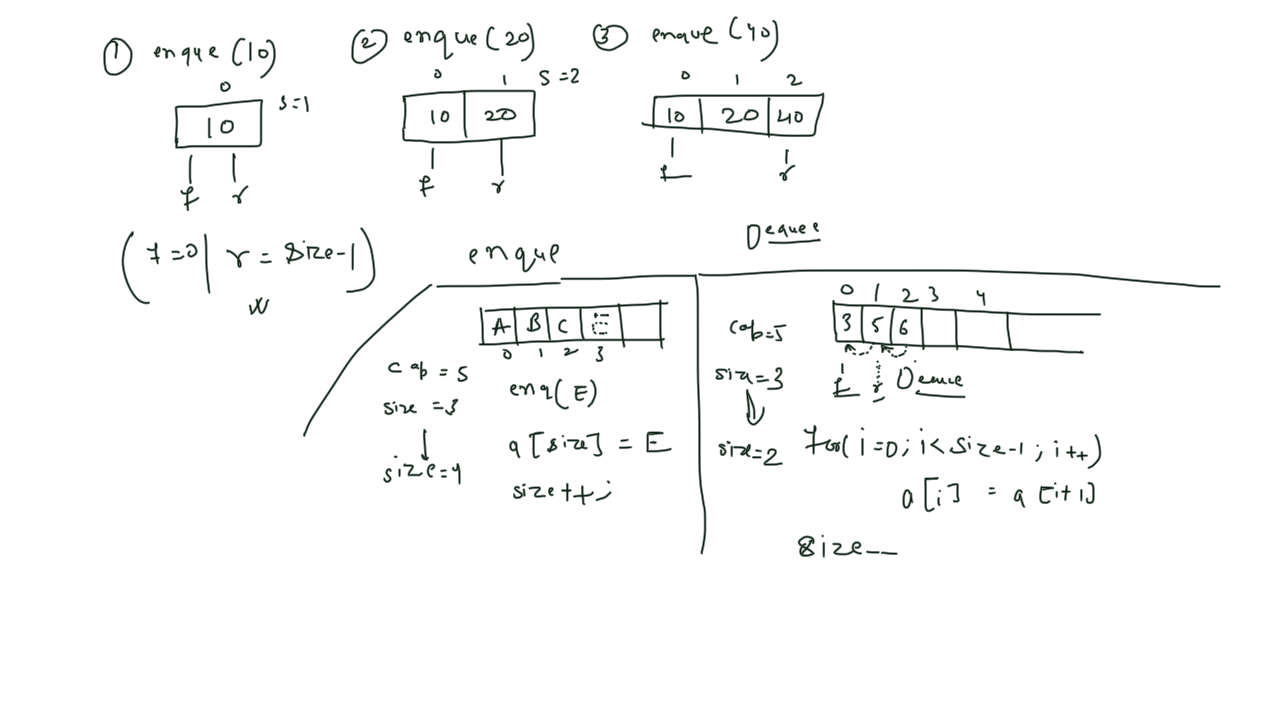 ① enque (10) ② enque (20) ③ enque (40)
0
S=1
10
f r
0 1 S=2
10 20
f r
0 1 2
10 20 40
f r
(f=0 | r = size-1)
enque
A B C E
0 1 2 3
cap = 5
size = 3
size = 4
enq(E)
a[size] = E
size++;
Dequee
0 1 2 3 4
cap=5
3 5 6
size=3
f r
size=2
for(i=0; i<size-1; i++)
a[i] = a[i+1]
size--